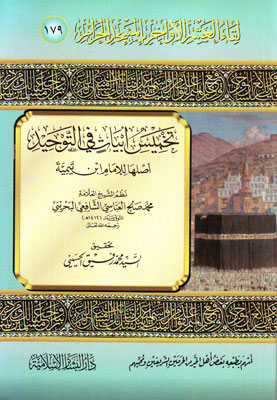 لقاء العشر الأواخر بالمسجد الحرام
١٧٩
تخميس أبيات في التوحيد
أصلها للإمام ابن تيمية
نظم الشيخ العلامة
محمد صالح العباسي الشافعي البحريني
رحمه الله تعالى
تحقيق
السيد محمد رفيق الحسيني
أسهم بطبعه بعض أهل الخير من الحرمين الشريفين ومحبيهم
دار البشائر الإسلامية